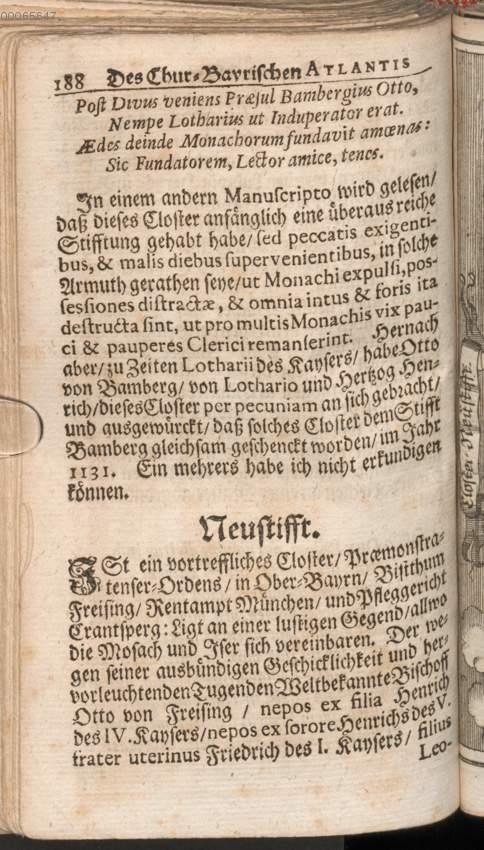 00065647
188 Des Chur-Bayrischen ATLANTIS
Post Divus veniens Præsul Bambergius Otto,
Nempe Lotharius ut Induperator erat.
Ædes deinde Monachorum fundavit amœnas:
Sic Fundatorem, Lector amice, tenes.
In einem andern Manuscripto wird gelesen/
daß dieses Closter anfänglich eine überaus reiche
Stifftung gehabt habe/ sed peccatis exigenti-
bus, & malis diebus supervenientibus, in solche
Armuth gerathen seye/ ut Monachi expulsi, pos-
sessiones distractæ, & omnia intus & foris ita
destructa sint, ut pro multis Monachis vix pau-
ci & pauperes Clerici remanserint. Hernach
aber/ zu Zeiten Lotharii des Kaysers/ habe Otto
von Bamberg/ von Lothario und Hertzog Hen-
rich/ dieses Closter per pecuniam an sich gebracht/
und ausgewürckt/ daß solches Closter dem Stifft
Bamberg gleichsam geschenckt worden/ im Jahr
1131. Ein mehrers habe ich nicht erkundigen
können.
Neustifft.
ISt ein vortreffliches Closter/ Præmonstra-
tenser-Ordens/ in Ober-Bayrn/ Bisthum
Freising/ Rentampt München/ und Pfleggericht
Crantsperg: Ligt an einer lustigen Gegend/ allwo
die Mosach und Iser sich vereinbaren. Der we-
gen seiner ausbündigen Geschicklichkeit und her-
vorleuchtenden Tugenden Weltbekannte Bischoff
Otto von Freising / nepos ex filia Henrich
des IV. Kaysers/ nepos ex sorore Henrichs des V.
frater uterinus Friedrich des I. Kaysers/ filius
Leo-
Closter Neustifft